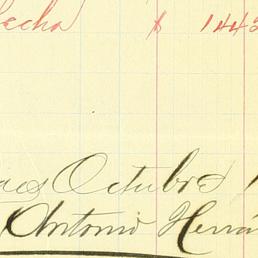 fecha $ 1442
Octubre 1
Antonio Herná